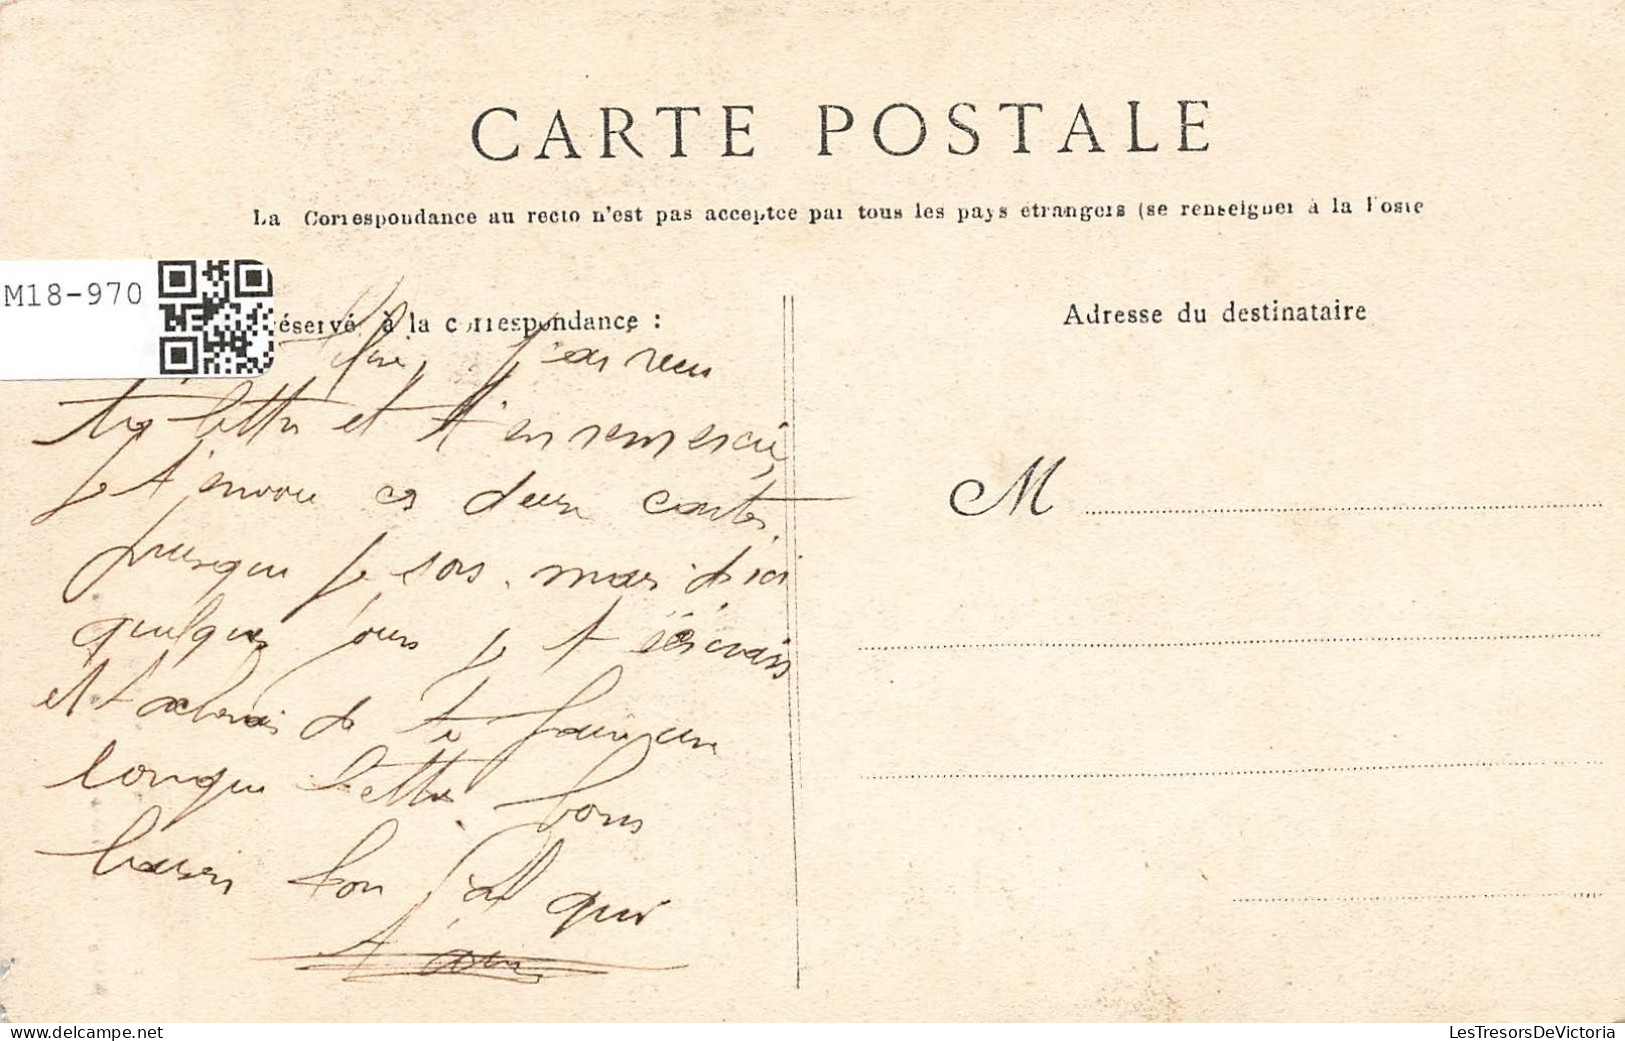 CARTE POSTALE
La Correspondance au recto n'est pas acceptée par tous les pays étrangers (se renseigner à la Poste
M18-970
éservé à la correspondance :
Adresse du destinataire
j'ai reçu
ta lettre et t'en remercie,
je t'envoie ces deux cartes
puisque je sors mais d'ici
quelques jours je t'écrirais
et tacherais de te faire une
longue lettre. bons
baisers ton qui
t'aime
M
LesTresorsDeVictoria